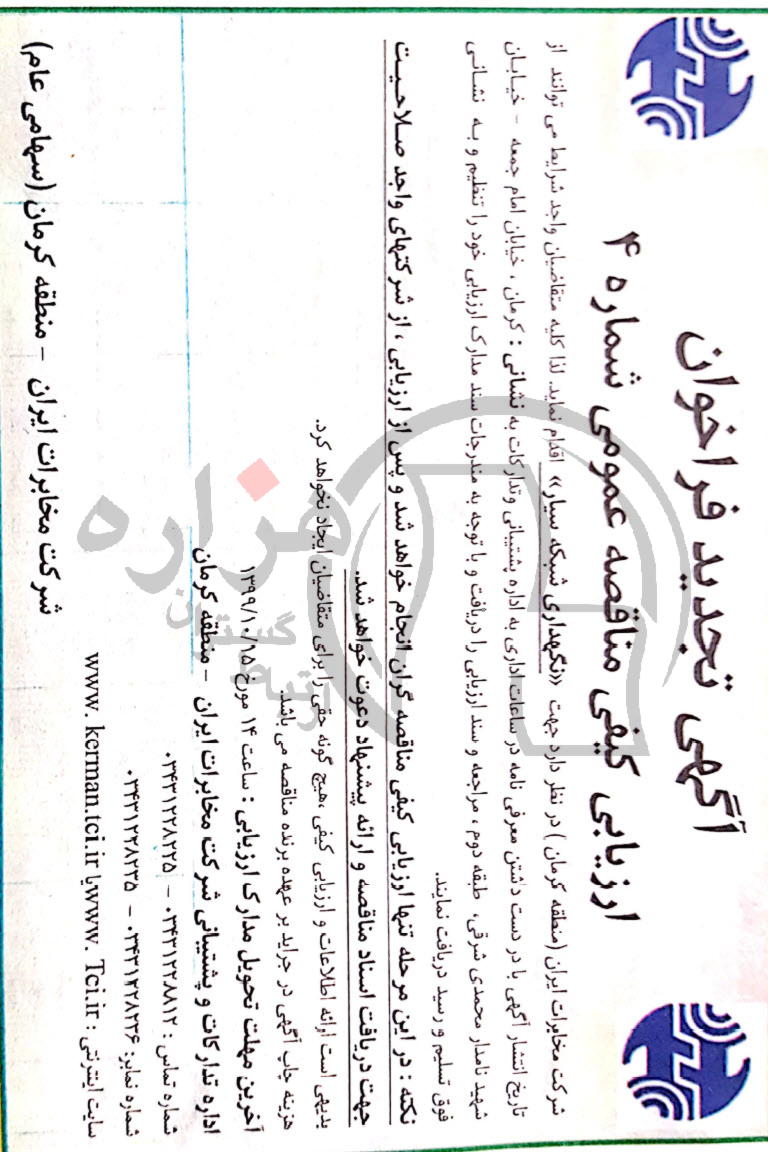 آگهی تجدید فراخوان
ارزیابی کیفی مناقصه عمومی شماره ۴
شرکت مخابرات ایران (منطقه کرمان ) در نظر دارد جهت «نگهداری شبکه سیار» اقدام نماید. لذا کلیه متقاضیان واجد شرایط می توانند از
تاریخ انتشار آگهی با در دست داشتن معرفی نامه در ساعات اداری به اداره پشتیبانی وتدارکات به نشانی : کرمان ، خیابان امام جمعه - خیابان
شهید نامدار محمدی شرقی، طبقه دوم ، مراجعه و سند ارزیابی را دریافت و با توجه به مندرجات سند مدارک ارزیابی خود را تنظیم و به نشانی
فوق تسلیم و رسید دریافت نمایند.
نکته : در این مرحله تنها ارزیابی کیفی مناقصه گران انجام خواهد شد و پس از ارزیابی ، از شرکتهای واجد صلاحیت
جهت دریافت اسناد مناقصه و ارائه پیشنهاد دعوت خواهد شد.
بدیهی است ارائه اطلاعات و ارزیابی کیفی ،هیچ گونه حقی را برای متقاضیان ایجاد نخواهد کرد.
هزینه چاپ آگهی در جراید بر عهده برنده مناقصه می باشد.
آخرین مهلت تحویل مدارک ارزیابی : ساعت ۱۴ مورخ ۱۳۹۹/۱۰/۱۵
اداره تدارکات و پشتیبانی شرکت مخابرات ایران - منطقه کرمان
شماره تماس : ۰۳۴۳۱۲۲۸۸۱۲ - ۰۳۴۳۱۲۲۸۲۲۵
شماره نمابر: ۰۳۴۳۱۲۲۸۲۳۶ - ۰۳۴۳۱۲۲۸۲۳۵
سایت اینترنتی : www. Tci.ir یا www. kerman.tci.ir
شرکت مخابرات ایران - منطقه کرمان (سهامی عام)
هزاره
ارتباط
گستران